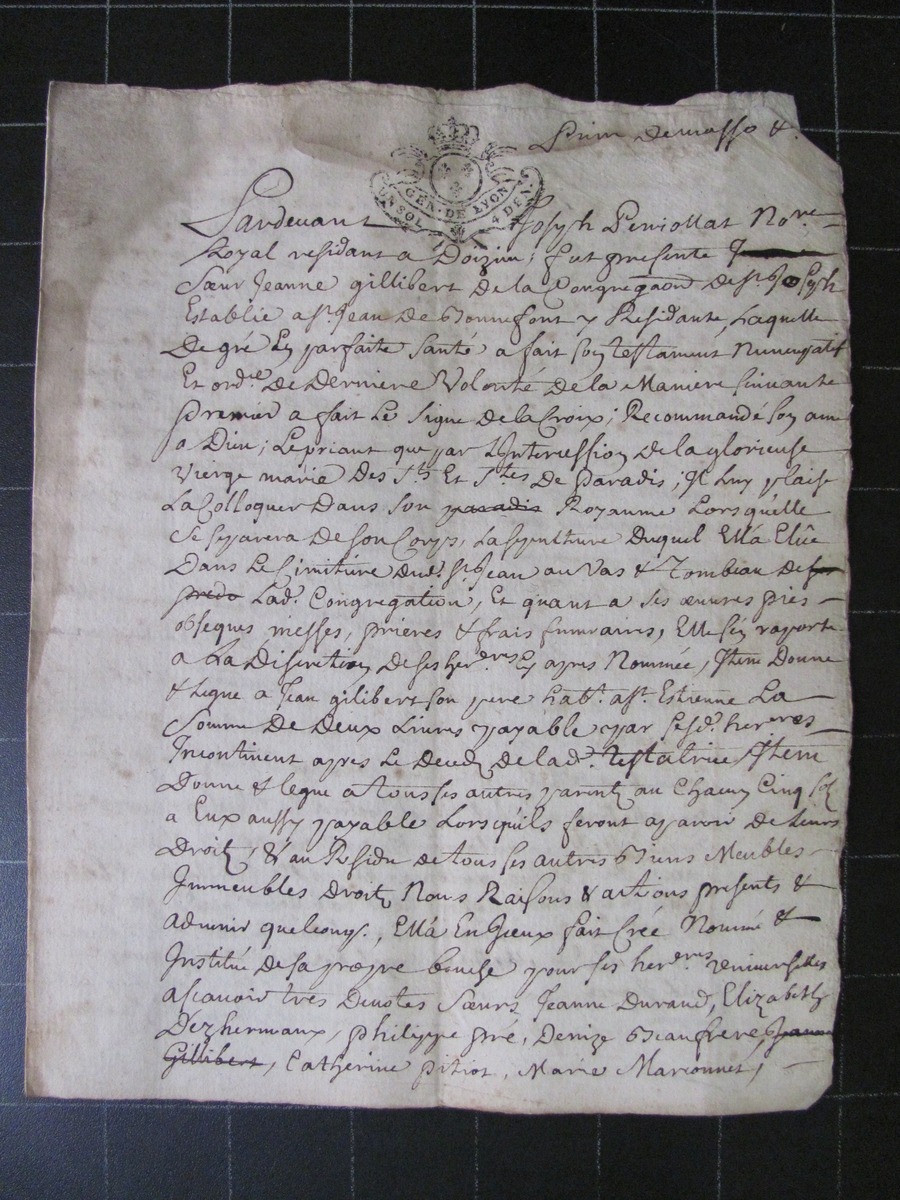 GEN · DE LYON
UN SOL 4 DEN
Pardevant Joseph Peniollat Nore
Royal residant a Doizieu ; fut presente
Sœur Jeanne gillibert de la Congregaon de St Joseph
Establie a St Jean de Bonnefont y Residante, Laquelle
De gré En parfaite santé a fait son testament Nuncupatif
Et ordre de Derniere Volonté de la Maniere suivante
premier a fait Le signe de la Croix ; Recommandé son ame
a Dieu ; Le priant que par L'Interession de la glorieuse
vierge marie des Sts Et Stes de paradis ; Il Luy plaise
La Colloquer Dans son paradis Royaume Lorsqu'elle
se separera de son Corps, La sepulture Duquel Ella Elûe
Dans Le Cimitiere dud. St Jean au Vas & Tombeau de
Lad. Congregation, Et quant a ses œuvres pies
obseques messes, prieres & frais funeraires, Elle sen raporte
a La Discretion de ses herres Cy apres Nommée, Item Donne
& legue a Jean gilibert son pere habt. a St. Estienne La
somme De Deux Livres payable par sesd. herres
Incontinent apres Le Deced de lad. testatrice Item
Donne & legue a tous ses autres parents au Chacun Cinq sol
a Eux aussy payable Lorsquils feront aparoir de Leurs
Droitz, & au Residu de tous ses autres Biens Meubles
Immeubles Droitz Noms Raisons & actions presents &
advenir quelconqs., Ella En Iceux fait Créé Nommé &
Institué de sa propre bouche pour ses herres universelles
ascavoir tres Devotes Sœurs Jeanne Durand, Elizabeth
Dezhermaux, philippe pré, Denize Beaufrere,
Gillibert, Catherine pitiot, Marie Marconnet,